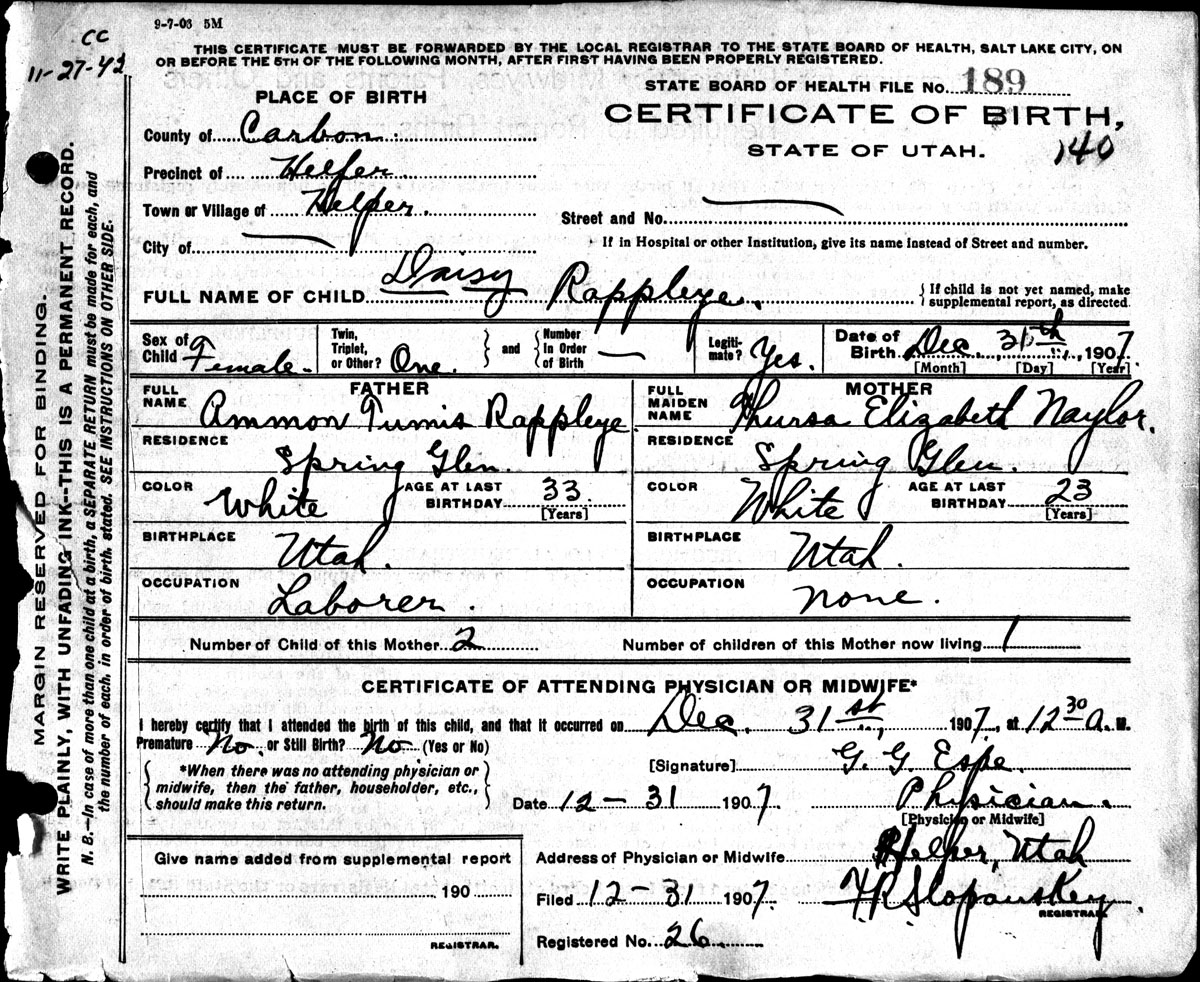 9-7-03 5M
CC
11-27-42
THIS CERTIFICATE MUST BE FORWARDED BY THE LOCAL REGISTRAR TO THE STATE BOARD OF HEALTH, SALT LAKE CITY, ON
OR BEFORE THE 5TH OF THE FOLLOWING MONTH, AFTER FIRST HAVING BEEN PROPERLY REGISTERED.
STATE BOARD OF HEALTH FILE No. 189
PLACE OF BIRTH
CERTIFICATE OF BIRTH,
STATE OF UTAH. 140
County of Carbon
Precinct of Helper
Town or Village of Helper.
Street and No.
City of
If in Hospital or other Institution, give its name instead of Street and number.
FULL NAME OF CHILD Daisy Rappleye. { If child is not yet named, make
supplemental report, as directed.
Sex of Child Female. Twin, Triplet, or Other? One. } and { Number In Order of Birth — Legitimate? Yes. Date of Birth Dec 31th, 1907
[Month] [Day] [Year]
FATHER MOTHER
FULL NAME Ammon Tumis Rappleye FULL MAIDEN NAME Thursa Elizabeth Naylor.
RESIDENCE Spring Glen. RESIDENCE Spring Glen.
COLOR White AGE AT LAST BIRTHDAY 33 [Years] COLOR White AGE AT LAST BIRTHDAY 23 [Years]
BIRTHPLACE Utah. BIRTHPLACE Utah.
OCCUPATION Laborer. OCCUPATION None.
Number of Child of this Mother 2 Number of children of this Mother now living 1
CERTIFICATE OF ATTENDING PHYSICIAN OR MIDWIFE*
I hereby certify that I attended the birth of this child, and that it occurred on Dec. 31st, 1907, at 12 30 A. M.
Premature No. or Still Birth? No. (Yes or No)
[Signature] G. G. Espe.
{ *When there was no attending physician or
midwife, then the father, householder, etc.,
should make this return. }
Date 12-31 1907 Physician.
[Physician or Midwife]
Give name added from supplemental report
190
REGISTRAR.
Address of Physician or Midwife Helper, Utah
Filed 12-31 1907 HR Slopanskey
REGISTRAR.
Registered No. 26
MARGIN RESERVED FOR BINDING.
WRITE PLAINLY, WITH UNFADING INK--THIS IS A PERMANENT RECORD.
N. B.—In case of more than one child at a birth, a SEPARATE RETURN must be made for each, and
the number of each, in order of birth, stated. SEE INSTRUCTIONS ON OTHER SIDE.